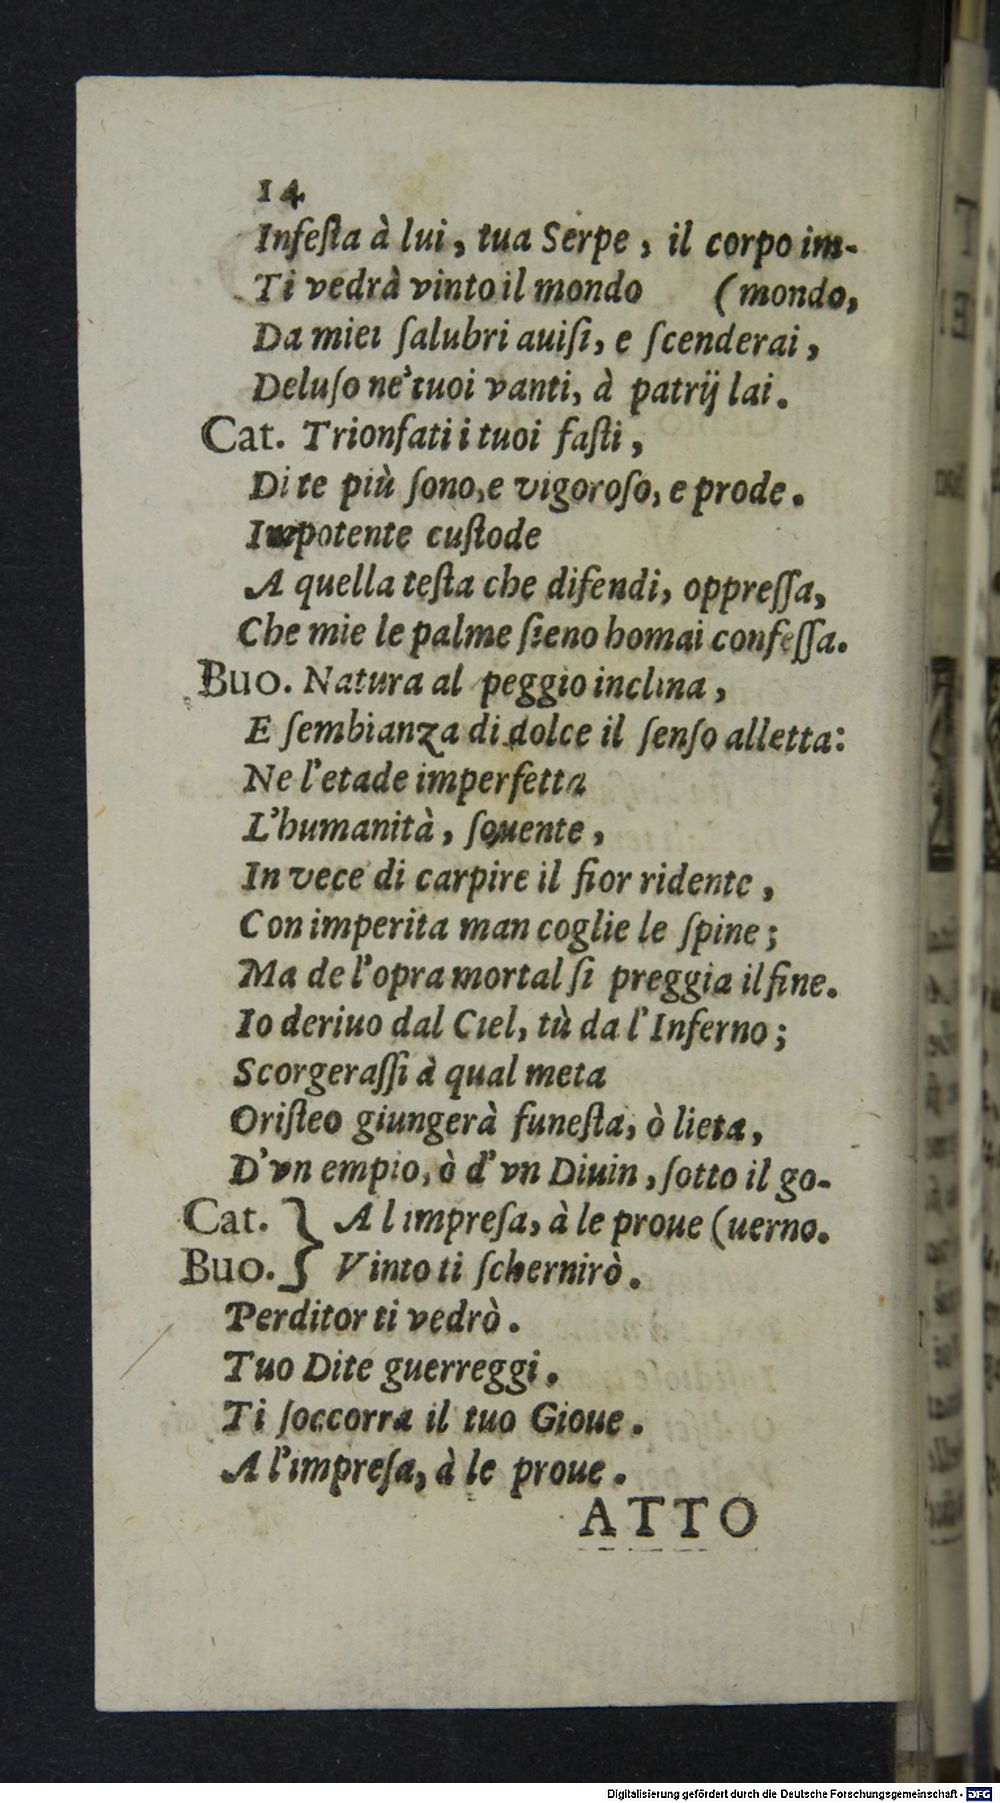 14
Infeſta à lui, tua Serpe, il corpo im-
Ti vedrà vinto il mondo (mondo,
Da miei ſalubri auiſi, e ſcenderai,
Deluſo ne' tuoi vanti, à patrij lai.
Cat. Trionfati i tuoi faſti,
Di te più ſono, e vigoroſo, e prode.
Impotente cuſtode
A quella teſta che difendi, oppreſſa,
Che mie le palme ſieno homai confeſſa.
Buo. Natura al peggio inclina,
E ſembianza di dolce il ſenſo alletta:
Ne l'etade imperfetta
L'humanità, ſouente,
In vece di carpire il fior ridente,
Con imperita man coglie le ſpine;
Ma de l'opra mortal ſi preggia il fine.
Io deriuo dal Ciel, tù da l'Inferno;
Scorgeraſſi à qual meta
Oriſteo giungerà funeſta, ò lieta,
D'vn empio, ò d'vn Diuin, ſotto il go-
Cat. } A l impreſa, à le proue (uerno.
Buo. } Vinto ti ſchernirò.
Perditor ti vedrò.
Tuo Dite guerreggi.
Ti ſoccorra il tuo Gioue.
A l'impreſa, à le proue.
ATTO
Digitalisierung gefördert durch die Deutsche Forschungsgemeinschaft - DFG